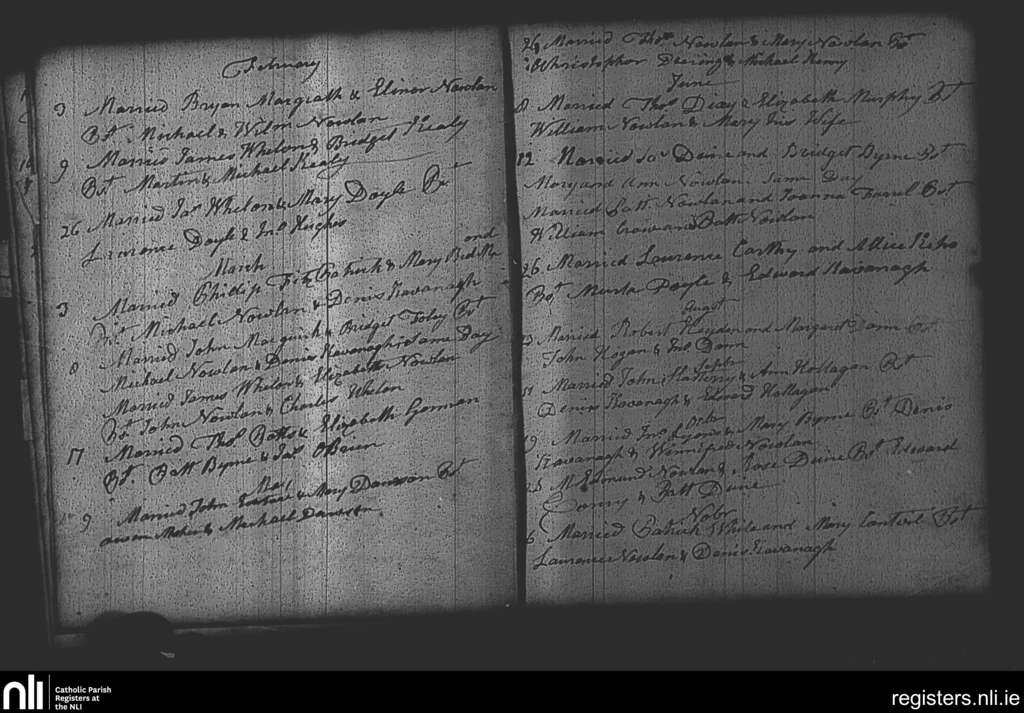 February
3 Married Bryan Margrath & Elinor Nowlan
Bt. Michael & Wilm Nowlan
9 Married James Whelon & Bridget Healy
Bt Martin & Michael Healy
26 Married Jas Whelon & Mary Doyle Bt
Lawrence Doyle & Jno Hughes
March
3 Married Phillip Fitz Patrick & Mary
Bt Michael Nowlan & Denis Kavanagh and
8 Married John & Bridget Foley Bt
Michael Nowlan & Denis Kavanagh Same Day
Married James Whelon & Elizabeth Nowlan
Bt John Nowlan & Charles Whelon
17 Married Thos Botts & Elizabeth Gorman
Bt. Batt Byrne & Jas OBrien
May
9 Married John & Mary Dawson Bt
& Michael Dawson
26 Married Thos Nowlan & Mary Nowlan Bt
Christopher & Michael Henny
June
8 Married Thos & Elizabeth Murphy Bt
William Nowlan & Mary his Wife
12 Married Jas Duine and Bridget Byrne Bt
Mary and Ann Nowlan. Same Day
Married Patt Nowlan and Joanna Farrel Bt
William and Patt Nowlan
26 Married Laurence Carthy and Allice Keho
Bt. Doyle & Edward Kavanagh
Augst
Married Robert Hayden and Margaret Dunn Bt
John Hogan & Jno Dunn
Septr
Married John & Ann Hollagan Bt
Denis Kavanagh & Edward Hollagan
Octr
19 Married Jno Lyons & Mary Byrne Bt Denis
Kavanagh & Nowlan
M Edmund Nowlan & Rose Duine Bt Edward
& Patt Duine
Nobr
6 Married Patrick White and Mary Bt
Laurence Nowlan & Denis Kavanagh
nli
Catholic Parish
Registers at
the NLI
registers.nli.ie